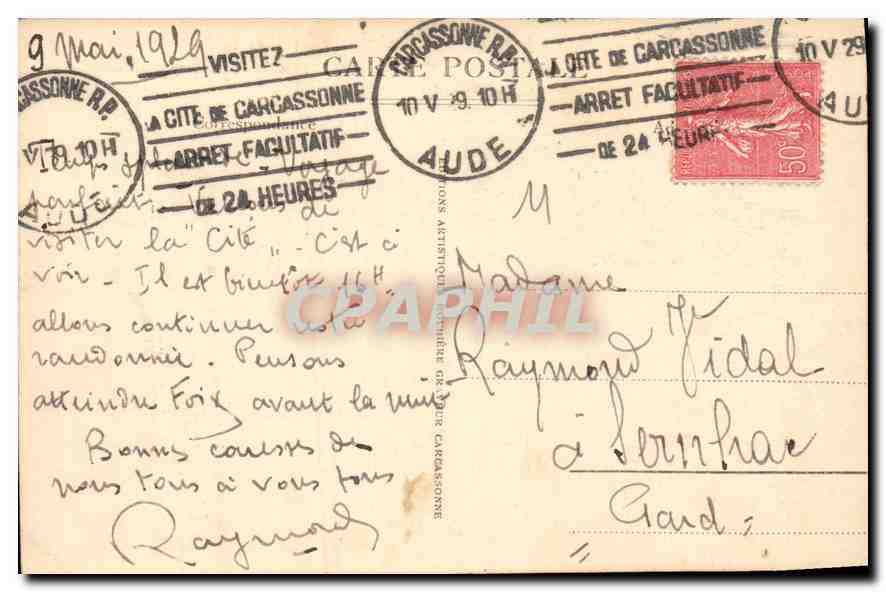 9 mai, 1929
CARTE POSTALE
Correspondance
VISITEZ
LA CITE DE CARCASSONNE
ARRET FACULTATIF
DE 24 HEURES
CARCASSONNE R.P.
10 V 29. 10 H
AUDE
LA CITE DE CARCASSONNE
ARRET FACULTATIF
DE 24 HEURES
10 V 29
AUDE
CARCASSONNE R.P.
V 29 10 H
AUDE
50
Temps Voyage
parfait. Venons de
visiter la "Cité" - C'est à
voir - Il est bientôt 16H
allons continuer notre
randonnée. Pensons
atteindre Foix avant la nuit
Bonnes caresses de
nous tous à vous tous
Raymond
EDITIONS ARTISTIQUES ROUDIÈRE GRAVEUR CARCASSONNE
M
Madame
Raymond Vidal
à Sernhac
Gard
CPAPHIL